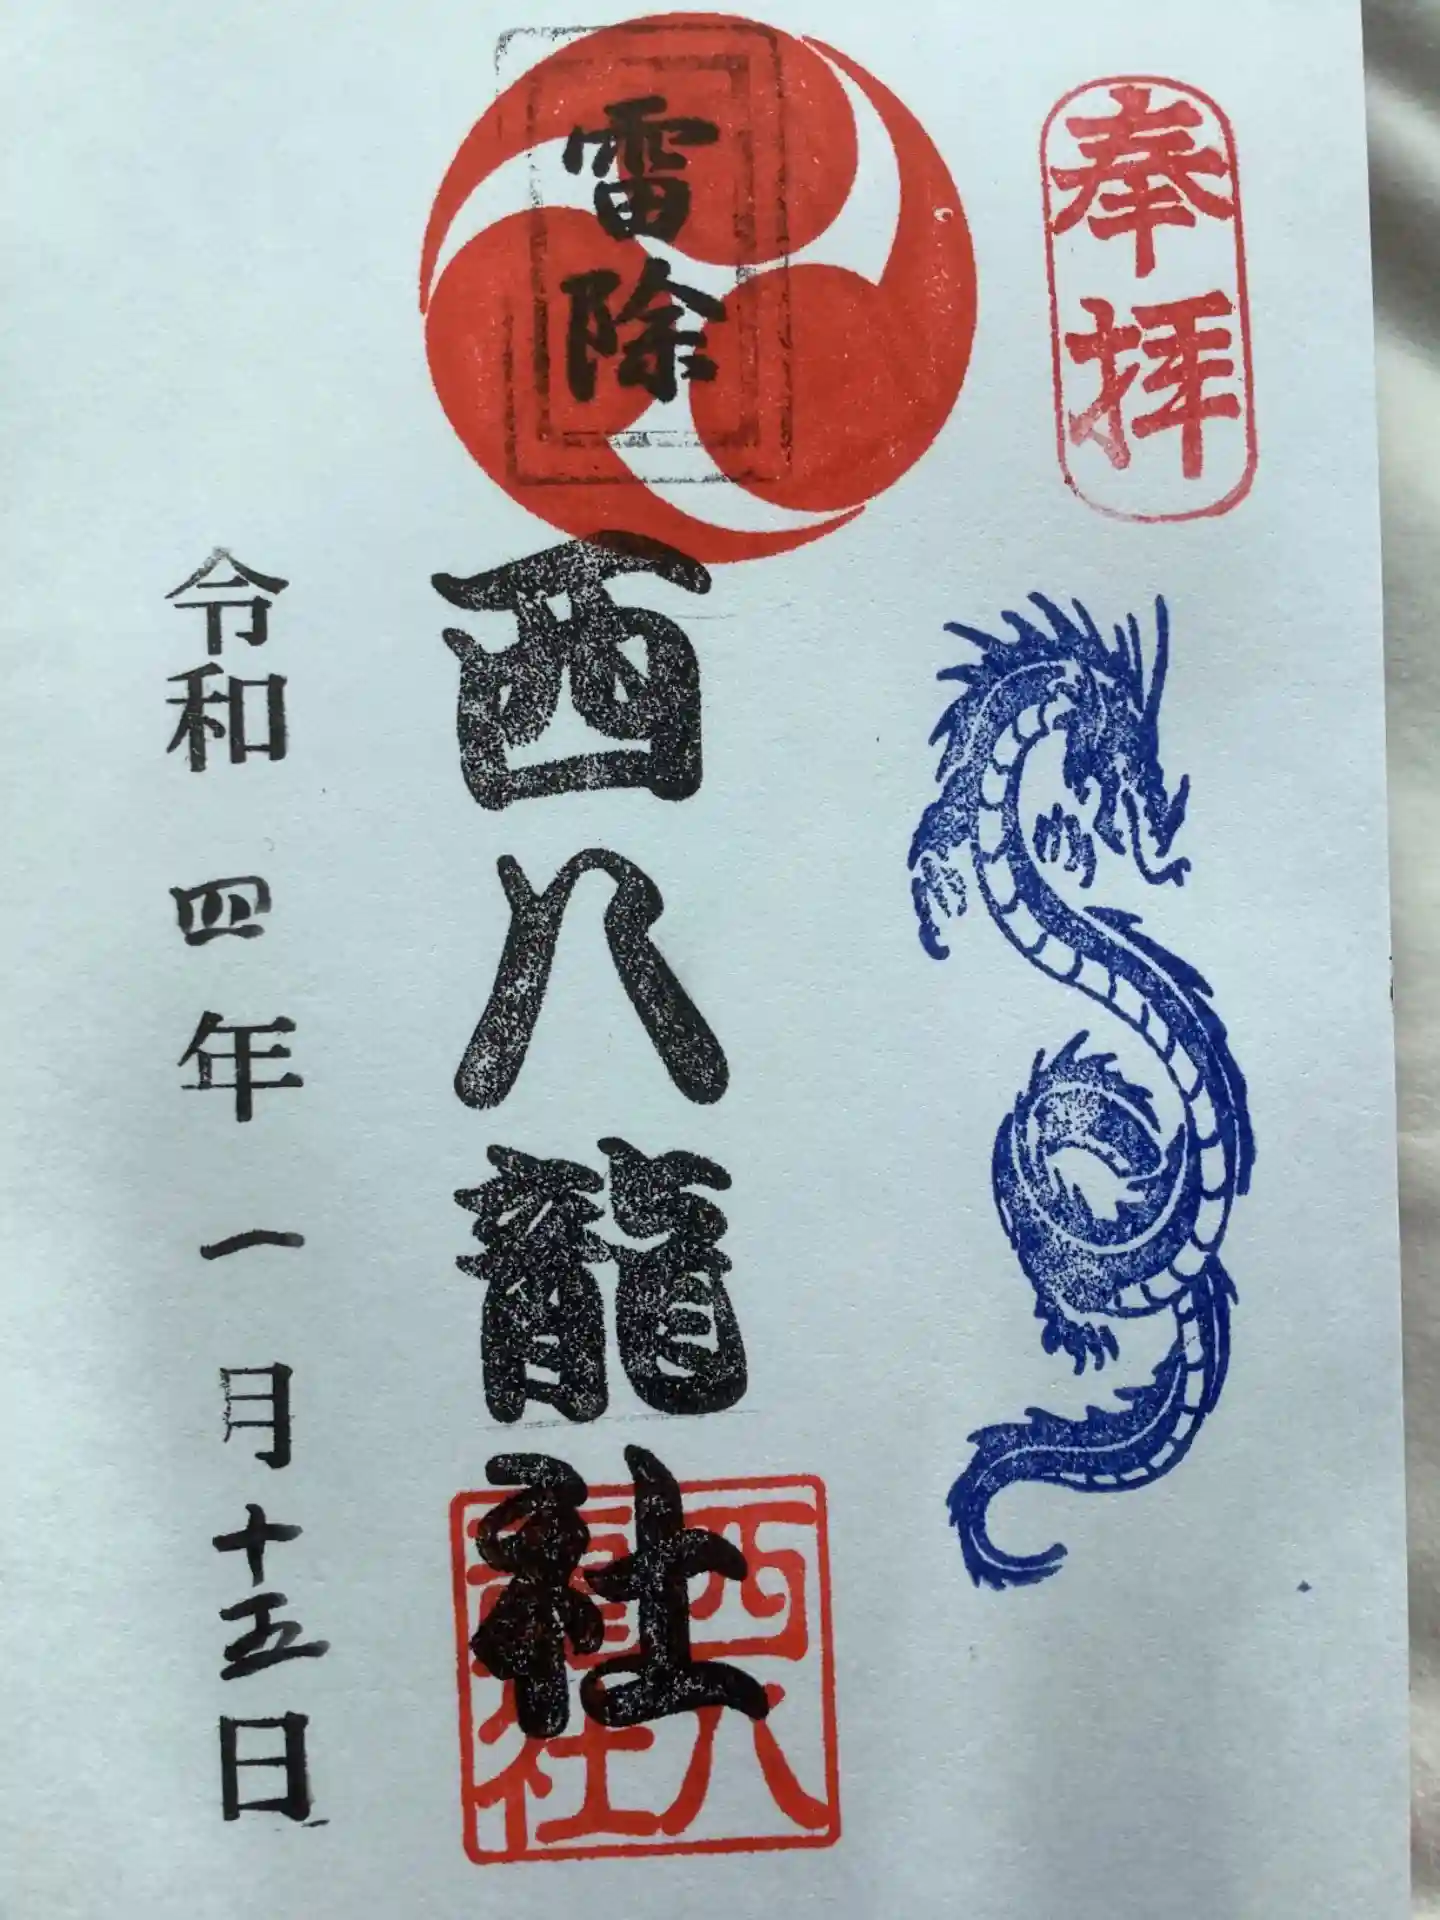 奉拝
雷除
西八龍社
西八
龍社
令和四年一月十五日